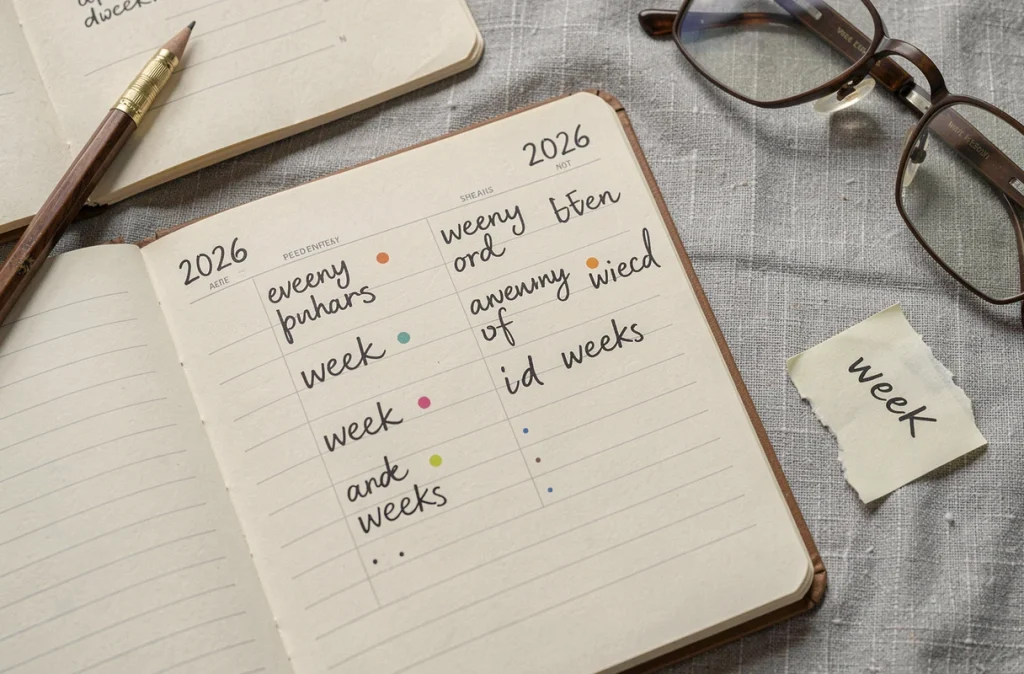 dweek.
2026
2026
AERE
PEEDENFIEAY
SHEARS
NOT
eveeny
puhars
week
week
ande
weeks
weeny
ord
arveumy wiecd
of
id weeks
week